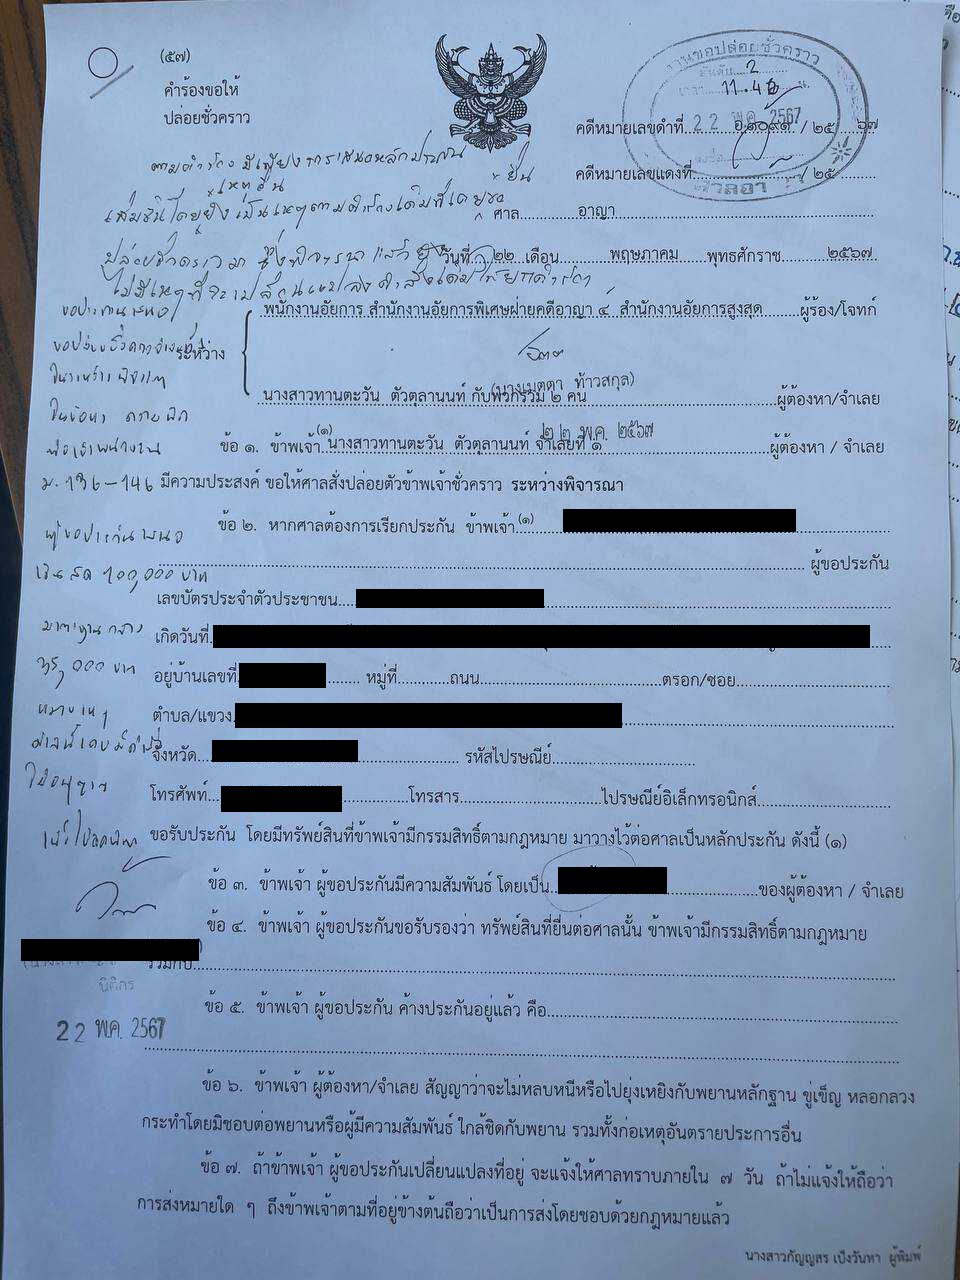 (๕๗)
คำร้องขอให้
ปล่อยชั่วคราว
งานขอปล่อยชั่วคราว
อันดับ 2
เวลา 11.46 น.
22 พ.ค. 2567
ศาลอาญา
คดีหมายเลขดำที่ อ.๑๐๙๑ / ๒๕ ๖๗
คดีหมายเลขแดงที่ / ๒๕
ตามคำร้อง มีเพียงการเสนอหลักประกัน
เหตุอื่น ยื่น
เพิ่มขึ้น เป็นเหตุตามคำร้องเดิมที่เคยขอ
ศาล อาญา
ปล่อยชั่วคราวมา ซึ่งพิจารณาแล้ว
วันที่ ๒๒ เดือน พฤษภาคม พุทธศักราช ๒๕๖๗
ไม่มีเหตุที่จะเปลี่ยนแปลงคำสั่งเดิม ให้ยกคำร้อง
พนักงานอัยการ สำนักงานอัยการพิเศษฝ่ายคดีอาญา ๔ สำนักงานอัยการสูงสุด ผู้ร้อง/โจทก์
ขอประทานเสนอ
ระหว่าง
(นางเมตตา ท้าวสกุล)
นางสาวทานตะวัน ตัวตุลานนท์ กับพวกรวม ๒ คน ผู้ต้องหา/จำเลย
๒๒ พ.ค. ๒๕๖๗
ข้อ ๑. ข้าพเจ้า(๑) นางสาวทานตะวัน ตัวตุลานนท์ จำเลยที่ ๑ ผู้ต้องหา / จำเลย
ม. 136-146
มีความประสงค์ ขอให้ศาลสั่งปล่อยตัวข้าพเจ้าชั่วคราว ระหว่างพิจารณา
ข้อ ๒. หากศาลต้องการเรียกประกัน ข้าพเจ้า(๑)
ผู้ขอประกันเสนอ
ผู้ขอประกัน
เงินสด 100,000 บาท
เลขบัตรประจำตัวประชาชน
มาตรฐานกลาง
เกิดวันที่
35,000 บาท
อยู่บ้านเลขที่ หมู่ที่ ถนน ตรอก/ซอย
หมายเหตุ
ตำบล/แขวง
ศาลนี้เคยมีคำสั่ง
จังหวัด รหัสไปรษณีย์
ไม่อนุญาต
โทรศัพท์ โทรสาร ไปรษณีย์อิเล็กทรอนิกส์
เพื่อโปรดพิจารณา
ขอรับประกัน โดยมีทรัพย์สินที่ข้าพเจ้ามีกรรมสิทธิ์ตามกฎหมาย มาวางไว้ต่อศาลเป็นหลักประกัน ดังนี้ (๑)
ข้อ ๓. ข้าพเจ้า ผู้ขอประกันมีความสัมพันธ์ โดยเป็น ของผู้ต้องหา / จำเลย
ข้อ ๔. ข้าพเจ้า ผู้ขอประกันขอรับรองว่า ทรัพย์สินที่ยื่นต่อศาลนั้น ข้าพเจ้ามีกรรมสิทธิ์ตามกฎหมาย
ร่วมกับ
นิติกร
ข้อ ๕. ข้าพเจ้า ผู้ขอประกัน ค้างประกันอยู่แล้ว คือ
22 พ.ค. 2567
ข้อ ๖. ข้าพเจ้า ผู้ต้องหา/จำเลย สัญญาว่าจะไม่หลบหนีหรือไปยุ่งเหยิงกับพยานหลักฐาน ขู่เข็ญ หลอกลวง
กระทำโดยมิชอบต่อพยานหรือผู้มีความสัมพันธ์ ใกล้ชิดกับพยาน รวมทั้งก่อเหตุอันตรายประการอื่น
ข้อ ๗. ถ้าข้าพเจ้า ผู้ขอประกันเปลี่ยนแปลงที่อยู่ จะแจ้งให้ศาลทราบภายใน ๗ วัน ถ้าไม่แจ้งให้ถือว่า
การส่งหมายใด ๆ ถึงข้าพเจ้าตามที่อยู่ข้างต้นถือว่าเป็นการส่งโดยชอบด้วยกฎหมายแล้ว
นางสาวกัญญสร เป้งวันทา ผู้พิมพ์